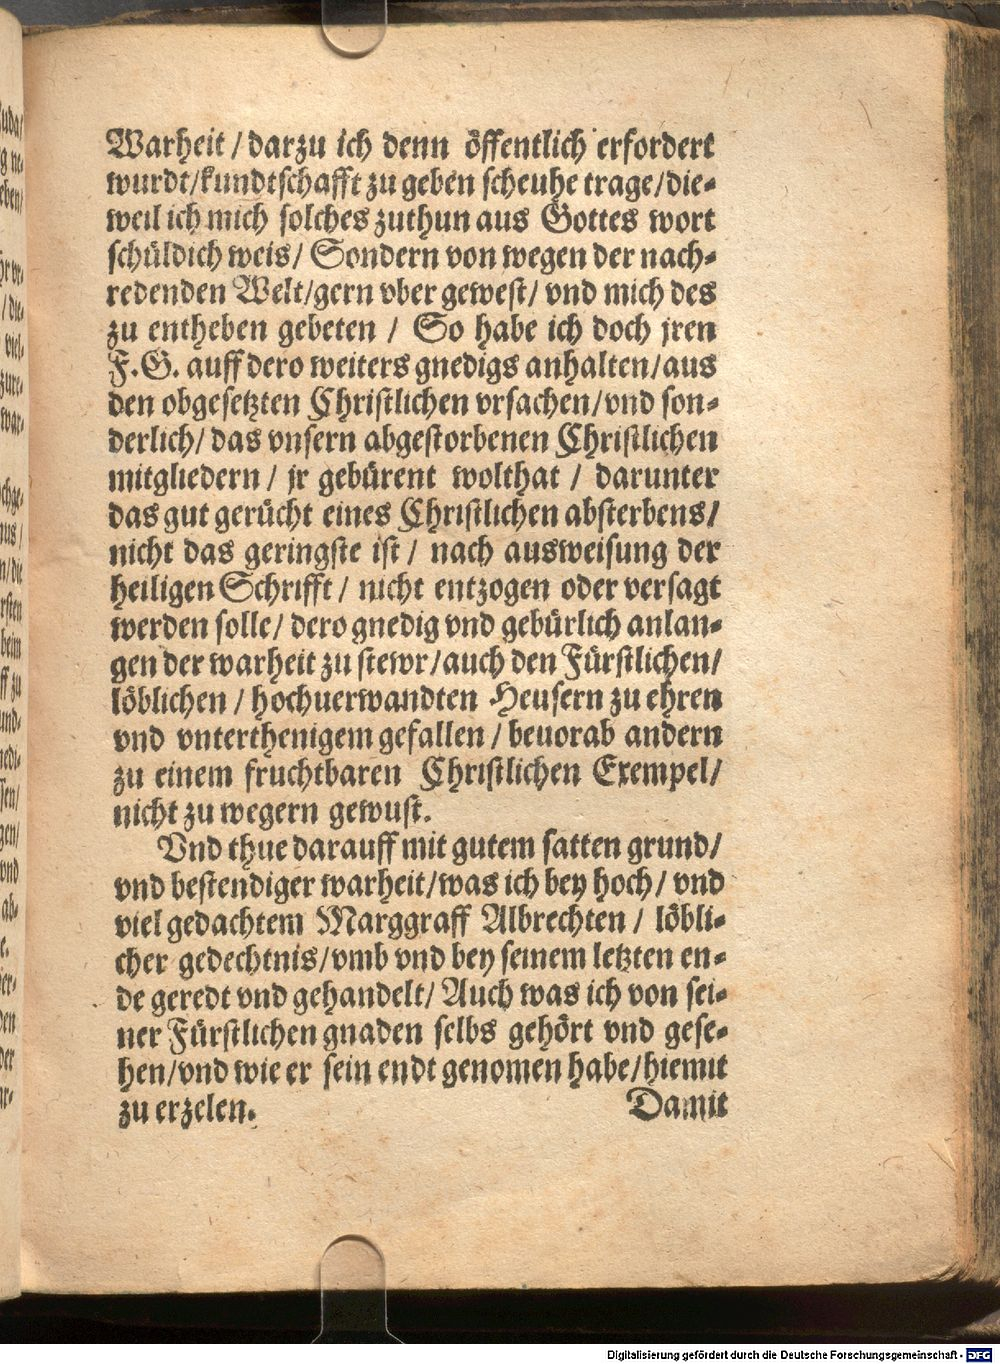 Warheit / darzu ich denn öffentlich erfordert
wurdt/kundtschafft zu geben scheuhe trage/die-
weil ich mich solches zuthun aus Gottes wort
schüldich weis/ Sondern von wegen der nach-
redenden Welt/gern vber gewest/ vnd mich des
zu entheben gebeten / So habe ich doch jren
F.G. auff dero weiters gnedigs anhalten/aus
den obgesetzten Christlichen vrsachen/vnd son-
derlich/ das vnsern abgestorbenen Christlichen
mitgliedern / jr gebürent wolthat / darunter
das gut gerücht eines Christlichen absterbens/
nicht das geringste ist / nach ausweisung der
heiligen Schrifft / nicht entzogen oder versagt
werden solle/ dero gnedig vnd gebürlich anlan-
gen der warheit zu stewr/auch den Fürstlichen/
löblichen / hochuerwandten Heusern zu ehren
vnd vnterthenigem gefallen / beuorab andern
zu einem fruchtbaren Christlichen Exempel/
nicht zu wegern gewust.
Vnd thue darauff mit gutem satten grund/
vnd bestendiger warheit/was ich bey hoch/ vnd
viel gedachtem Marggraff Albrechten / löbli-
cher gedechtnis/vmb vnd bey seinem letzten en-
de geredt vnd gehandelt/ Auch was ich von sei-
ner Fürstlichen gnaden selbs gehört vnd gese-
hen/vnd wie er sein endt genomen habe/hiemit
zu erzelen. Damit
Digitalisierung gefördert durch die Deutsche Forschungsgemeinschaft - DFG